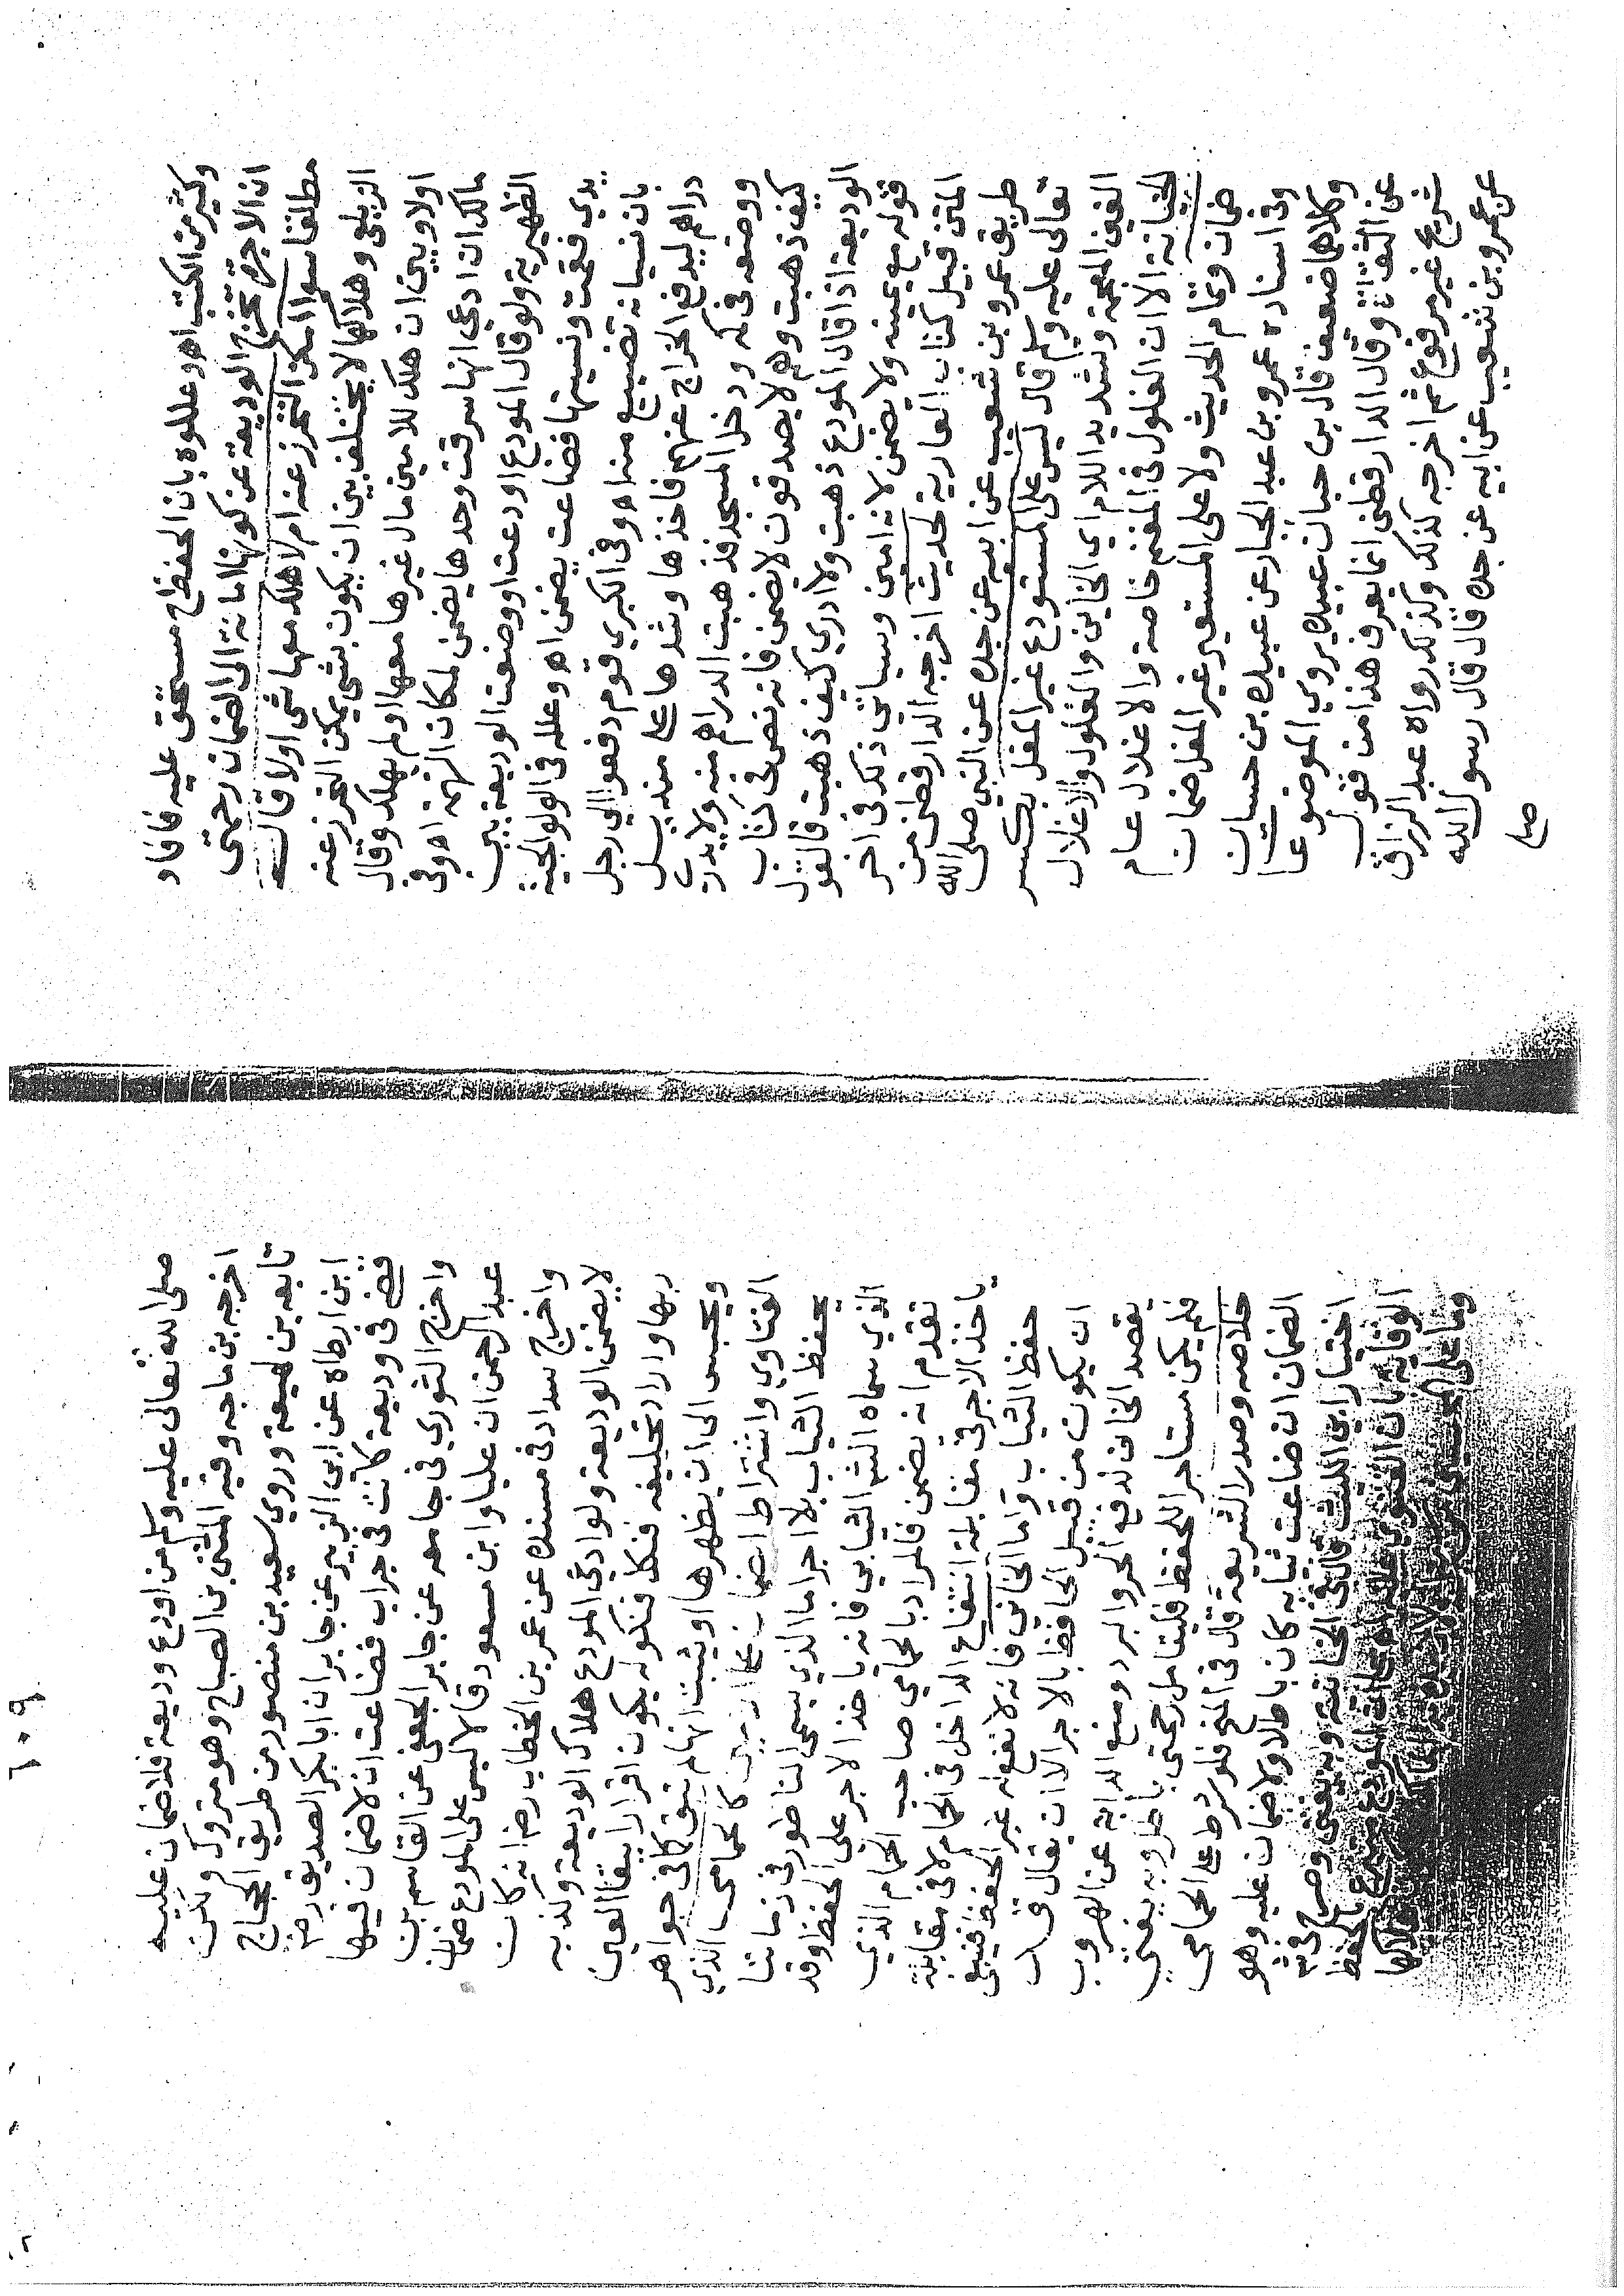 وكثير من الكتب اه وعللوه بان الحفظ مستحق عليه فافاد
ان الاجرة تخرج الوديعة عن كونها امانة الى الضمان رحمتى
مطلقا سوا امكن التحرز عنه ام لا هلك معها شى اولا قال
الزيلعي وهلاكها لا يختلف بين ان يكون بشى يمكن التحرز عنه
اولا وبين ان هلك للامين مال غيرها معها او لم يهلك وقال
مالك ان ادعى انها سرقت وحدها يضمن لمكان التهمة اه وفى
الظهيرية ولو قال المودع اودعت او وضعت الوديعة بين
يدي فقمت ونسيتها فضاعت يضمن اه وعلله فى الولوالجية
بان نسيانه تضييع منه اه وفى الكبري قوم دفعوا الى رجل
دراهم ليدفع الخراج عنهم فاخذها وشدها على منديل
ووضعه فى كمه ودخل المسجد فذهبت الدراهم منه ولا يدري
كيف ذهبت وهم لا يصدقون لا يضمن فانه نص فى كتاب
الوديعة اذا قال المودع ذهبت ولا ادري كيف ذهبت فالقول
قوله مع يمينه ولا يضمن لانه امين وسياتى ذكره فى اخر
المتن قبيل كتاب العارية لحديث اخرجه الدارقطنى من
طريق عمرو بن شعيب عن ابيه عن جده عن النبي صلى الله
تعالى عليه وسلم قال ليس على المستودع غير المغل بكسر
الغين المعجمة وتشديد اللام اي الخاين والغلول والاغلال
الخيانة الا ان الغلول فى المغنم خاصة والاغلال عام
ضمان وتمام الحديث ولا على المستعير غير المغل ضمان
وفى اسناده عمرو بن عبد الجبار عن عبيدة بن حسان
وكلاهما ضعيف قال بن حبان عبيدة يروي الموضوعا
عن الثقات وقال الدارقطنى انما يعرف هذا من قول
شريح غير مرفوع ثم اخرجه كذلك وكذلك رواه عبد الرزاق
عن عمرو بن شعيب عن ابيه عن جده قال قال رسول الله
صلى
١٠٩
صلى الله تعالى عليه وسلم من اودع وديعة فلا ضمان عليه
اخرجه بن ماجه وفيه المثنى بن الصباح وهو متروك ولكن
تابعه بن لهيعة وروي سعيد بن منصور من طريق الحجاج
ابن ارطاه عن ابى الزبير عن جابر ان ابا بكر الصديق رضى
قضى فى وديعة كانت فى جراب فضاعت ان لا ضمان فيها
واخرج الثوري فى جامعه عن جابر الجعفى عن القاسم بن
عبد الرحمن ان عليا وابن مسعود قالا ليس على المودع ضمان
واخرج مسدد فى مسنده عن عمر بن الخطاب رض انه كان
لا يضمن الوديعة ولو ادعى المودع هلاك الوديعة وكذبه
ربها واراد تحليفه فنكل فنكوله يكون اقرارا ببقا العين
ويحبس الى ان يظهرها او يثبت انها لم تبق كما فى جواهر
الفتاوي واشتراط الضمان على الامين كالحمامى الذي
يحفظ الثياب بلا اجر اما الذي يسمى الناطور فى زماننا
الذي سماه الشم الثيابي فانه ياخذ الاجر على الحفظ وقد
تقدم انه يضمن فالمراد بالحمامي صاحب الحمام الذي
ياخذ الاجر فى مقابلة انتفاع الداخل فى الحمام لا فى مقابلة
حفظ الثياب واما الخانى فانه لا نفع له غير الحفظ فينبغى
ان يكون من قبيل الحافظ بالاجر الا ان يقال قد
يقصد الخان لدفع الحر والبرد ومنع الدابة عن الهروب
فلم يكن مستاجرا للحفظ فليتامل رحمتى باطل وبه يفتي
خلاصه وصدر الشريعة قال فى المنح فلو شرط على الحمامى
الضمان ان ضاعت ثيابه كان باطلا ولا ضمان عليه وهو
اختيار ابى الليث قال فى الخانية وبه يفتى وصرح فى شرح
الوقاية بان الفتوي عليه